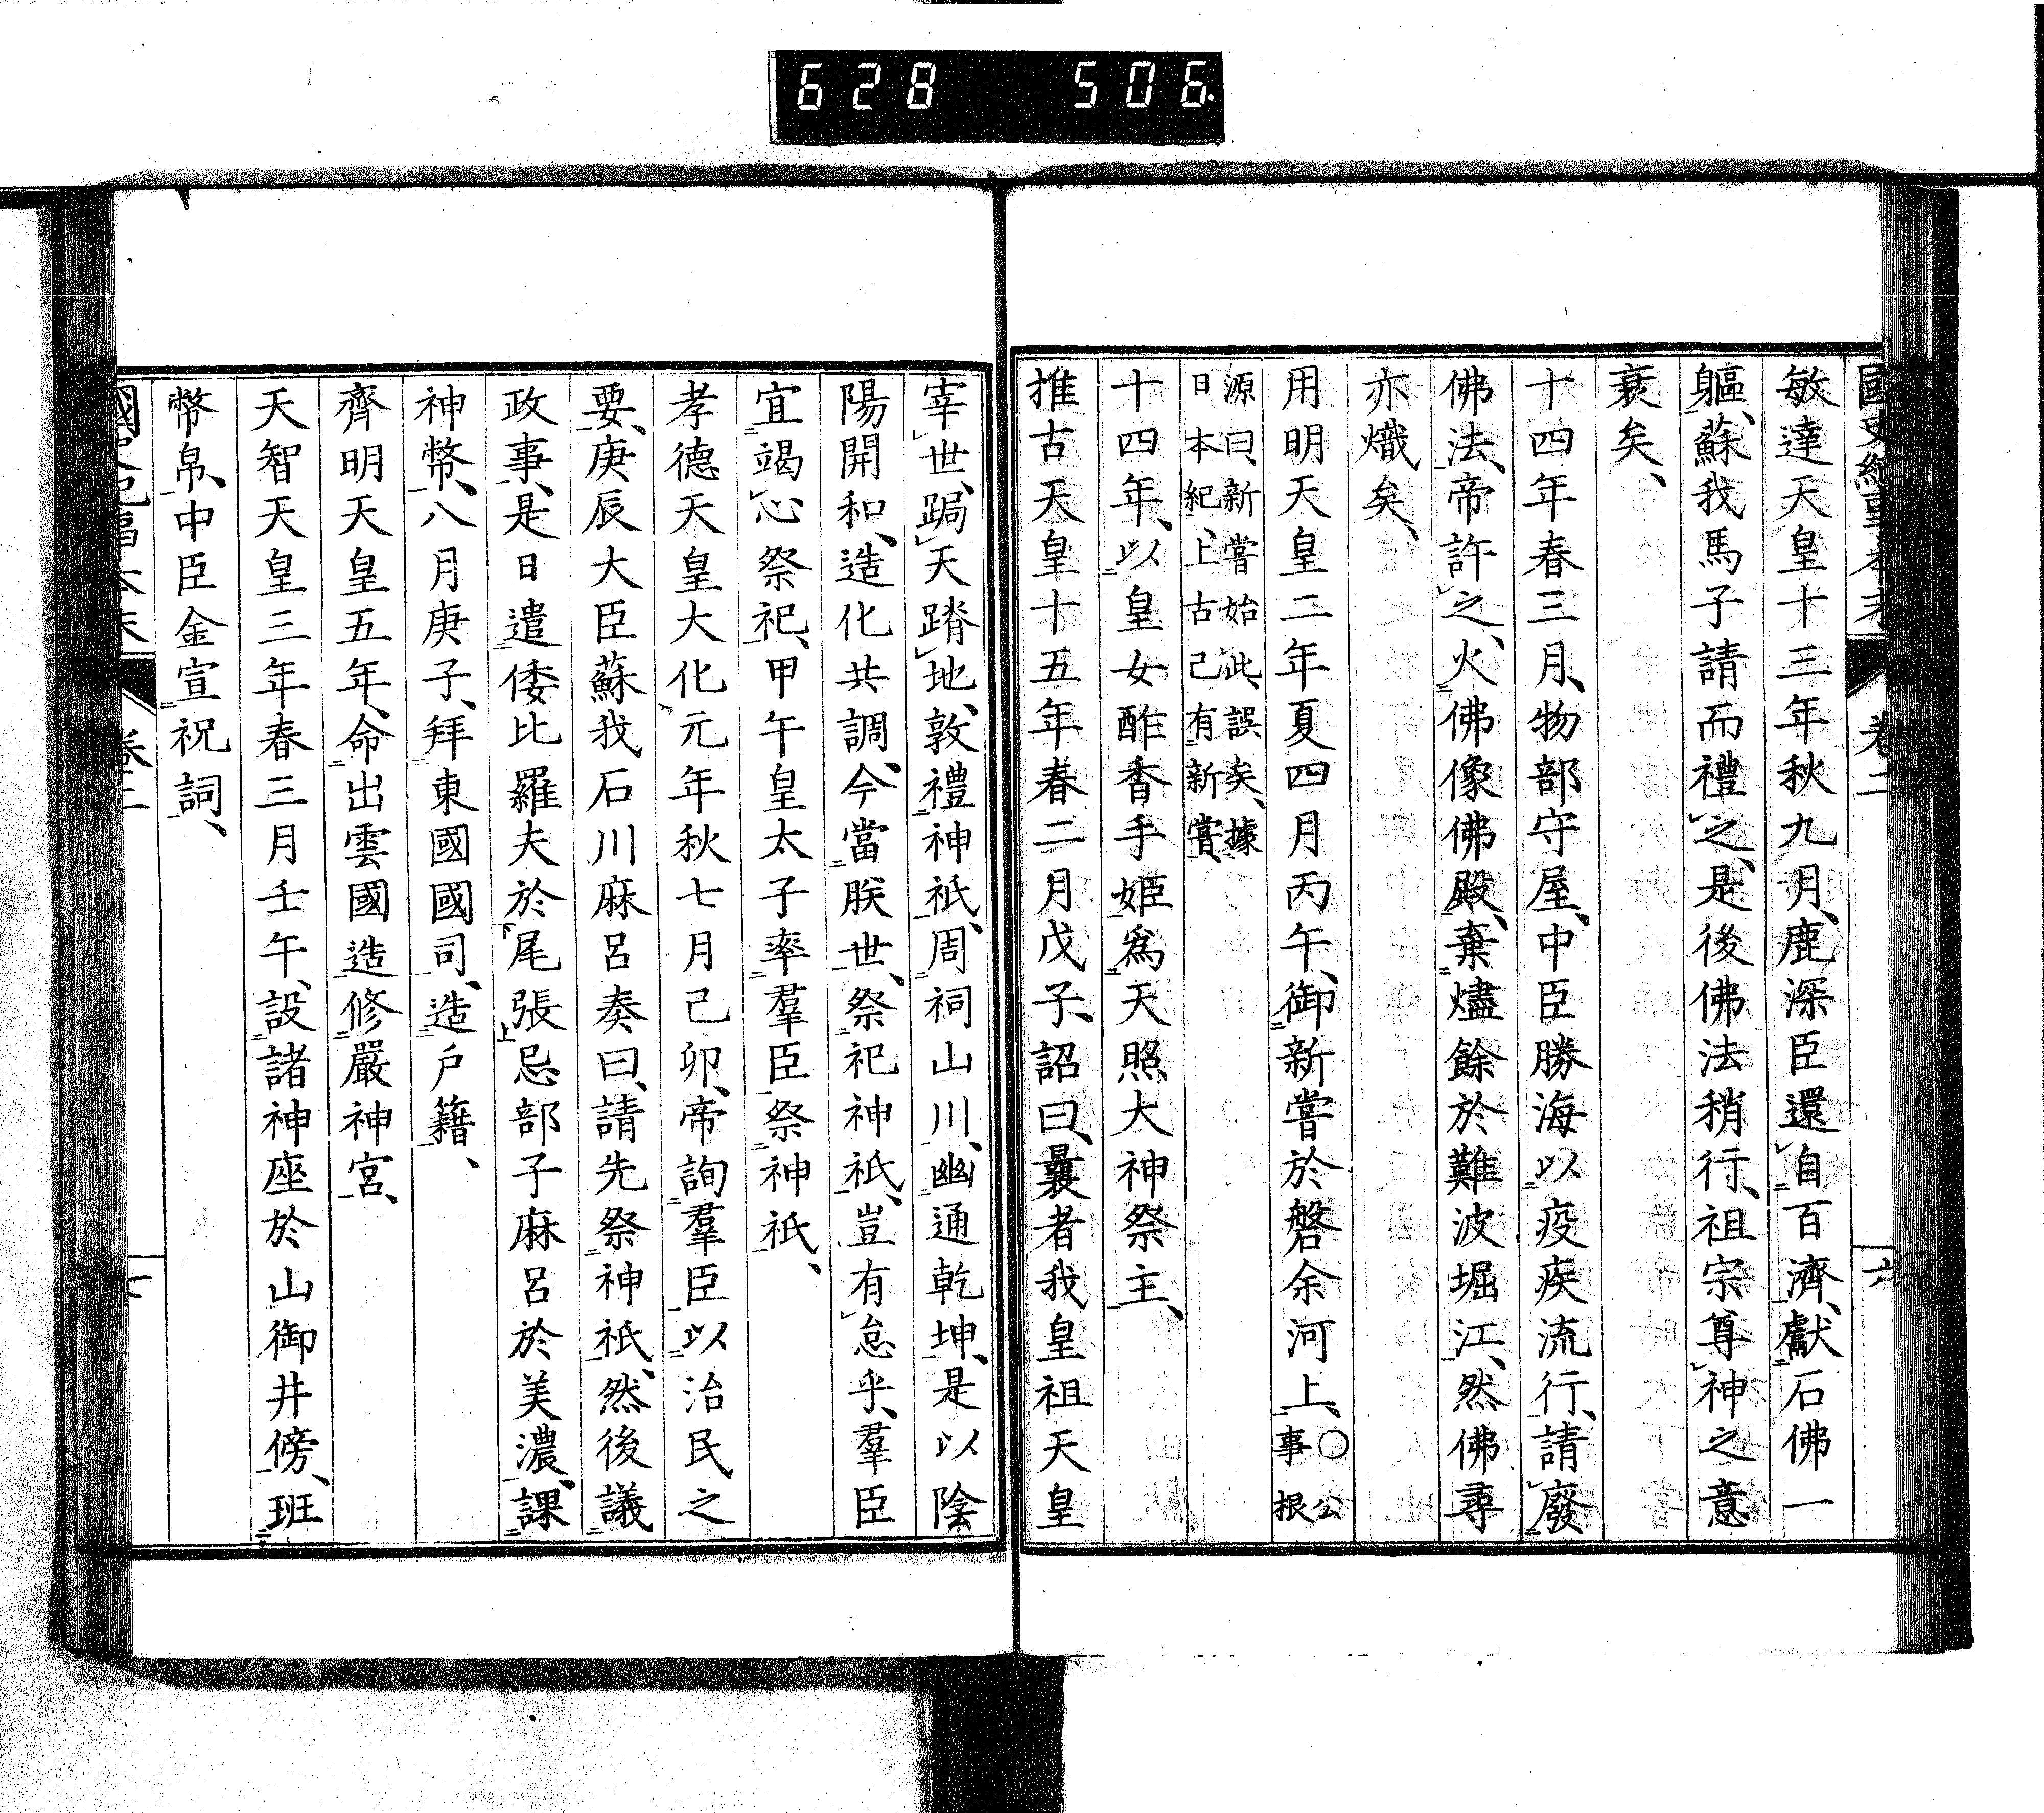 628 506.
敏達天皇十三年秋九月、鹿深臣還自百濟、獻石佛一
軀、蘇我馬子請而禮之、是後佛法稍行、祖宗尊神之意
衰矣、
十四年春三月、物部守屋、中臣勝海以疫疾流行、請廢
佛法、帝許之、火佛像佛殿、棄燼餘於難波堀江、然佛尋
亦熾矣、
用明天皇二年夏四月丙午、御新嘗於磐余河上、○公事根
源曰、新嘗始此、誤矣、據
日本紀、上古已有新嘗、
十四年、以皇女酢香手姬爲天照大神祭主、
推古天皇十五年春二月戊子、詔曰、曩者我皇祖天皇
宰世、跼天蹐地、敦禮神祇、周祠山川、幽通乾坤、是以陰
陽開和、造化共調、今當朕世、祭祀神祇、豈有怠乎、羣臣
宜竭心祭祀、甲午皇太子率羣臣祭神祇、
孝德天皇大化元年秋七月己卯、帝詢羣臣以治民之
要、庚辰大臣蘇我石川麻呂奏曰、請先祭神祇、然後議
政事、是日遣倭比羅夫於尾張忌部子麻呂於美濃、課
神幣、八月庚子、拜東國國司、造戶籍、
齊明天皇五年、命出雲國造修嚴神宮、
天智天皇三年春三月壬午、設諸神座於山御井傍、班
幣帛、中臣金宣祝詞、